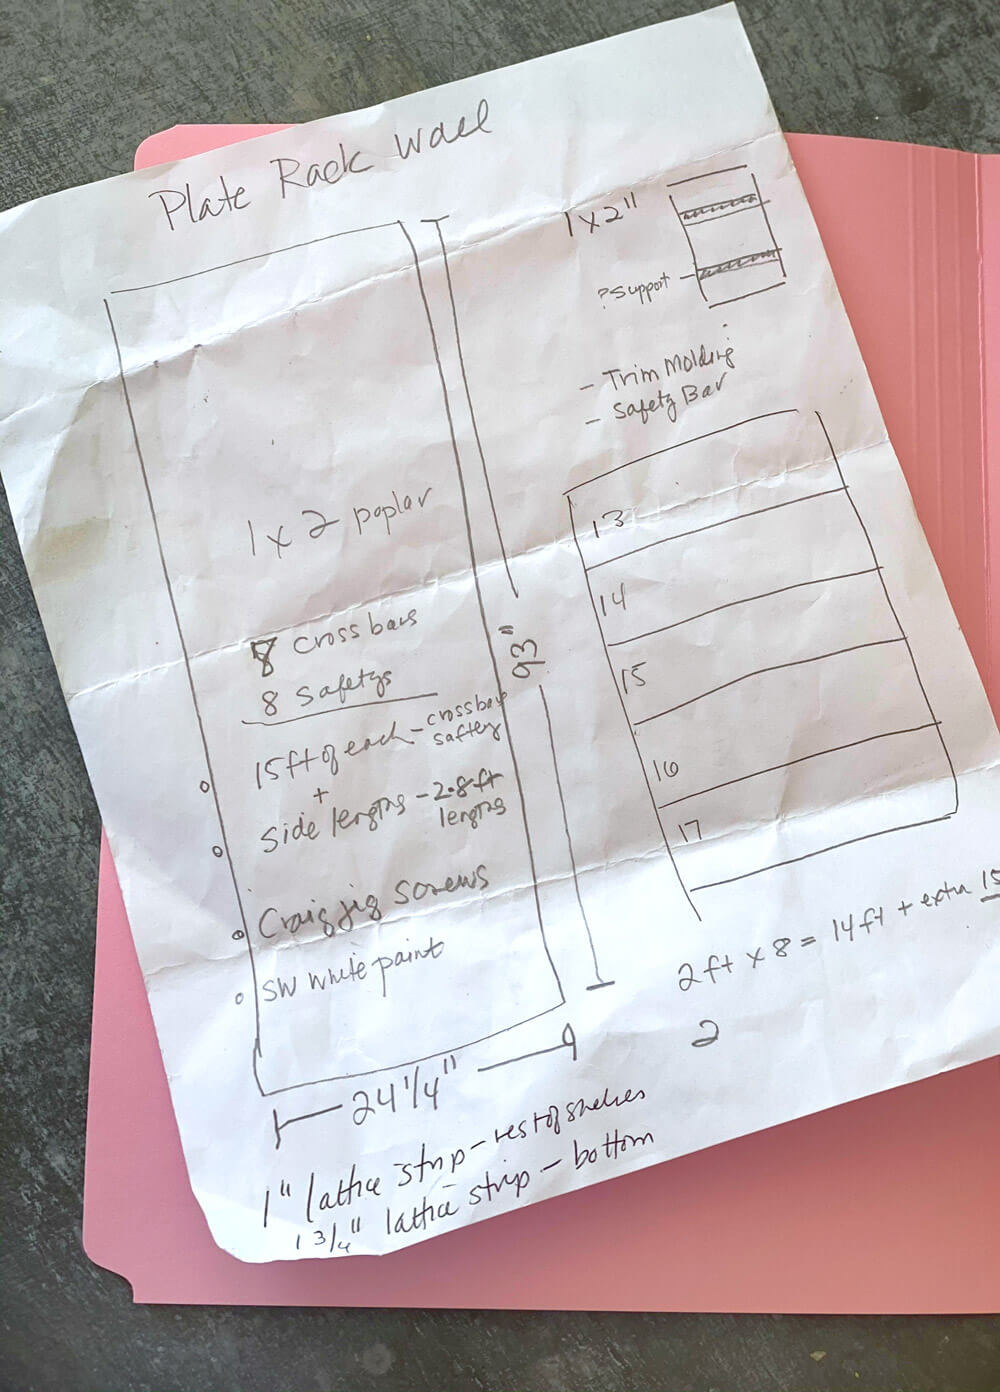 Plate Rack Wall
1 x 2"
? Support
- Trim Molding
- Safety Bar
1 x 2 poplar
8 Cross bars
8 Safetys
15ft of each - crossbar
saftey
+
Side lengths - 2.8ft
lengths
Craig jig screws
SW white paint
93"
24 1/4"
13
14
15
16
17
2ft x 8 = 14ft + extra 15
2
1" lattice strip - rest of shelves
1 3/4" lattice strip - bottom